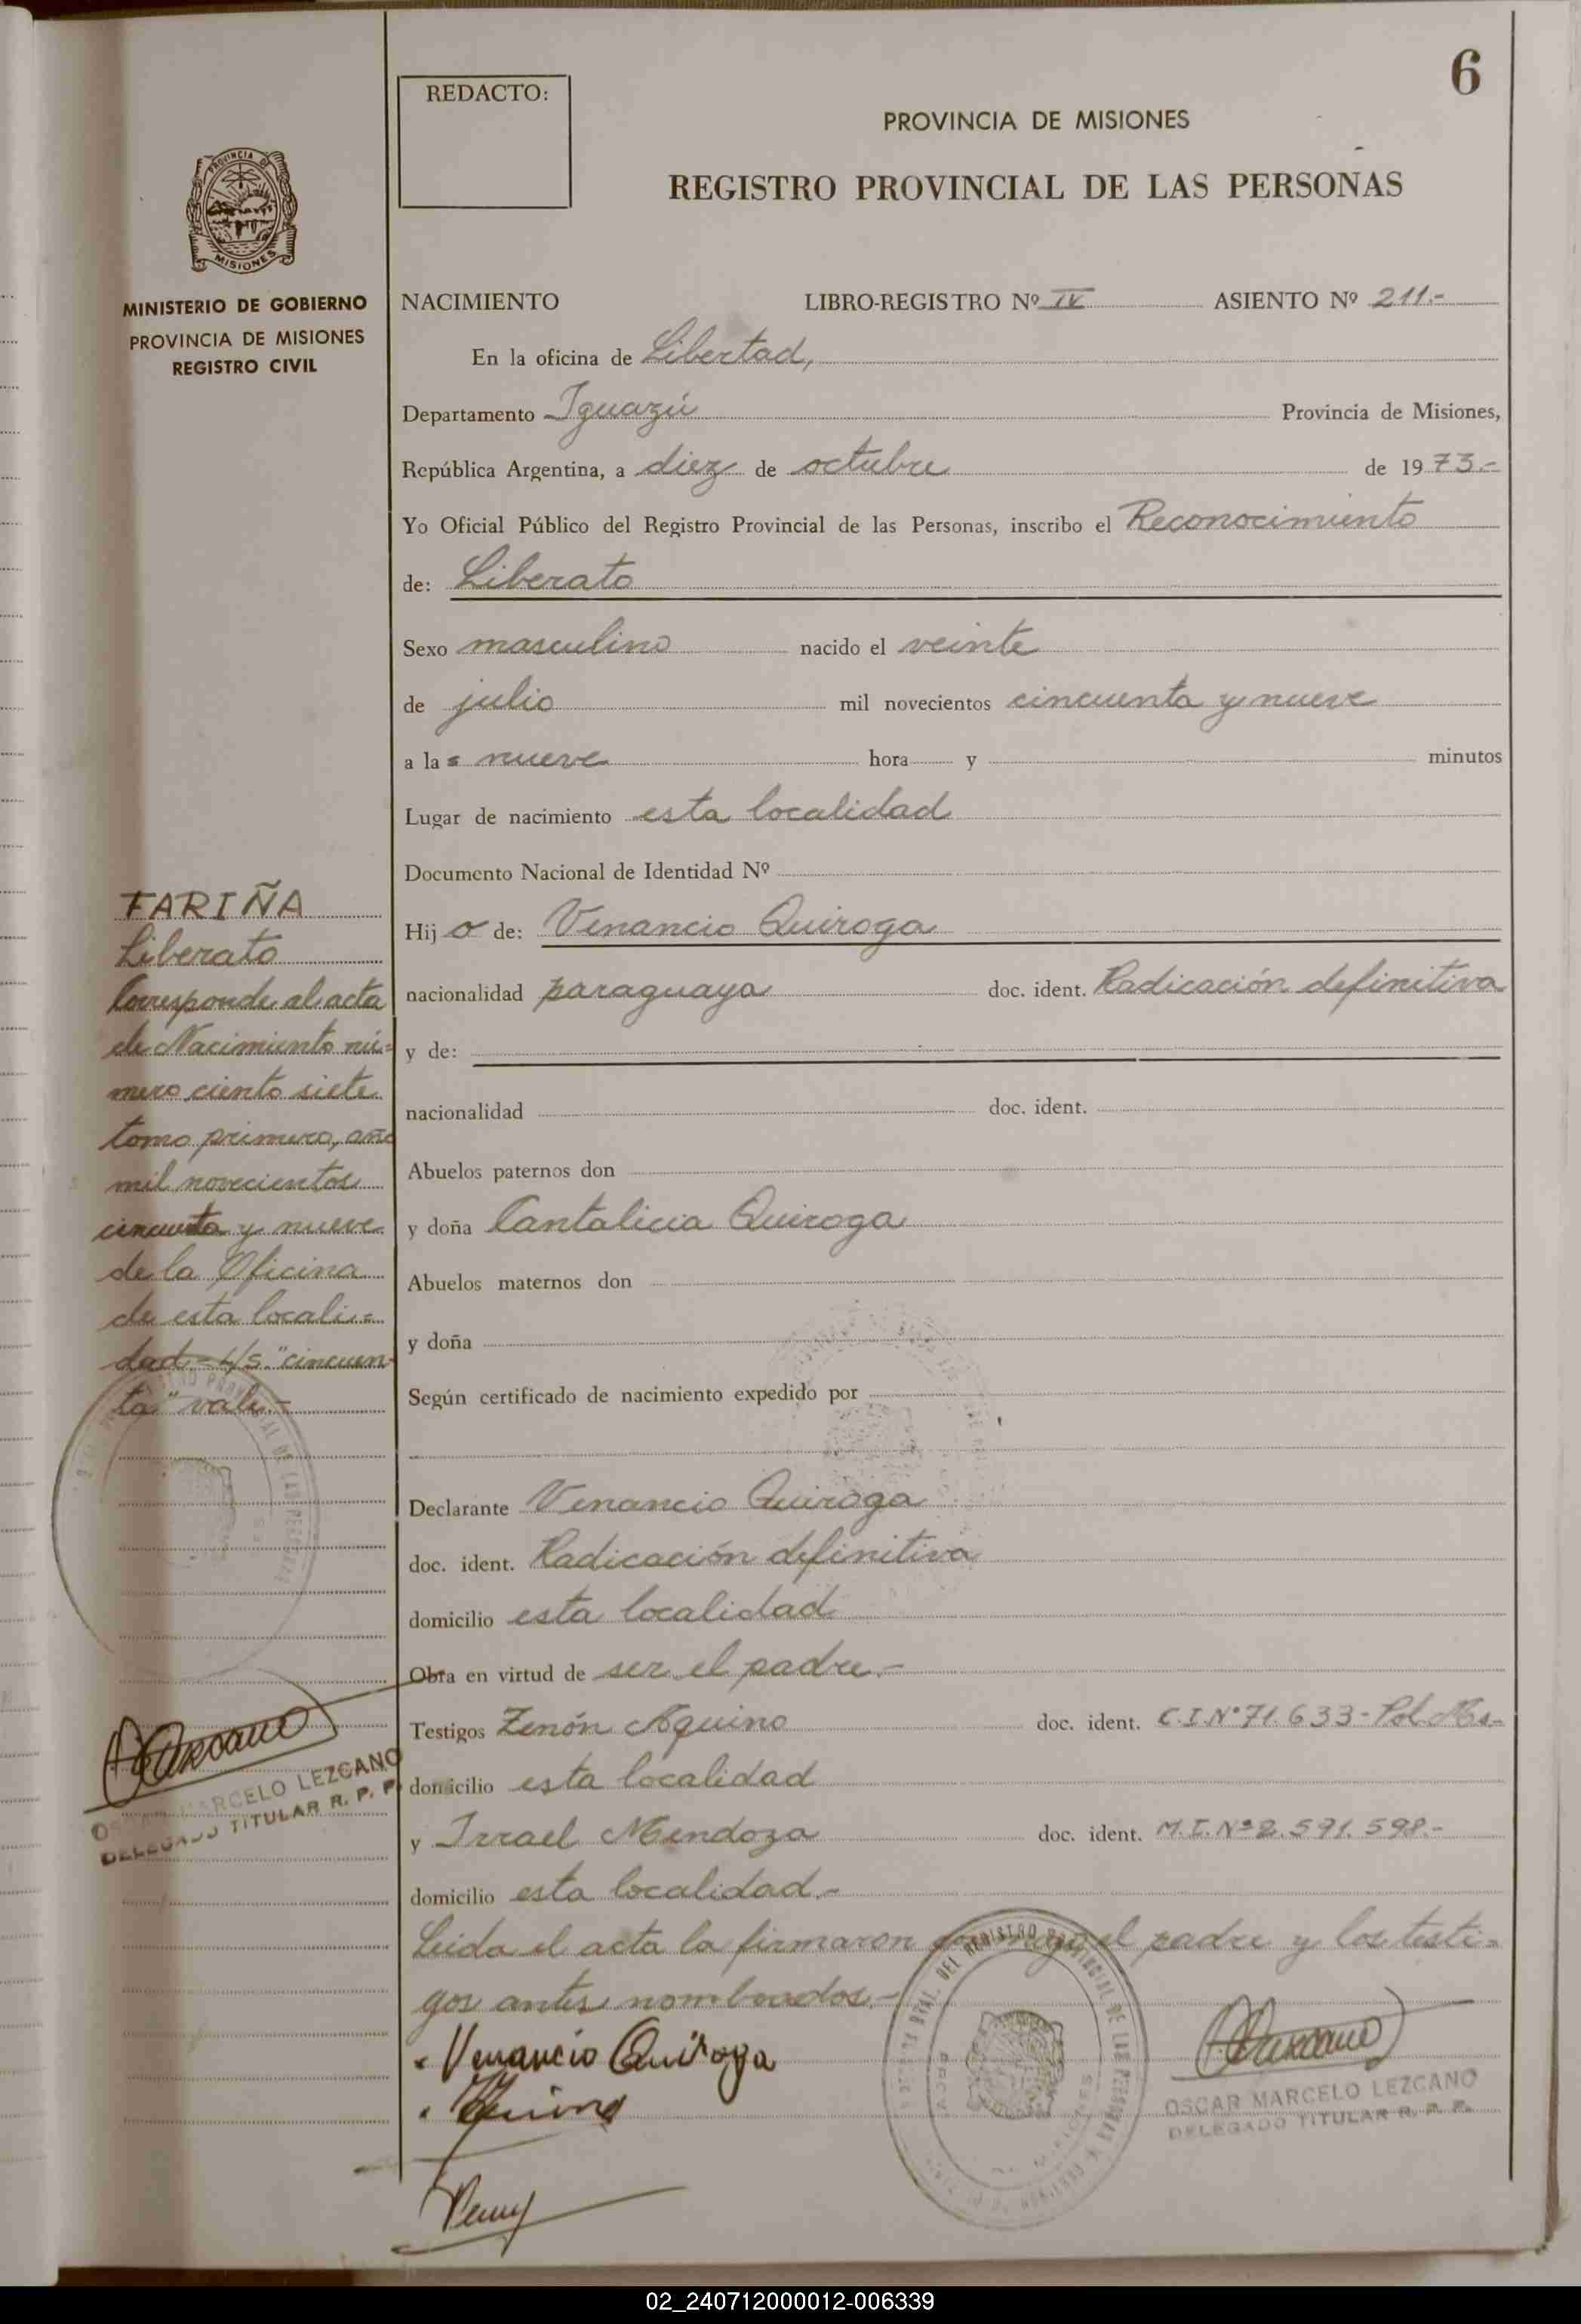 6
REDACTO:
PROVINCIA DE MISIONES
REGISTRO PROVINCIAL DE LAS PERSONAS
PROVINCIA DE
MISIONES
MINISTERIO DE GOBIERNO
PROVINCIA DE MISIONES
REGISTRO CIVIL
NACIMIENTO LIBRO-REGISTRO Nº IV ASIENTO Nº 211.-
En la oficina de Libertad,
Departamento Iguazú Provincia de Misiones,
República Argentina, a diez de octubre de 1973.-
Yo Oficial Público del Registro Provincial de las Personas, inscribo el Reconocimiento
de: Liberato
Sexo masculino nacido el veinte
de julio mil novecientos cincuenta y nueve
a las nueve hora y minutos
Lugar de nacimiento esta localidad
Documento Nacional de Identidad Nº
Hijo de: Venancio Quiroga
nacionalidad paraguaya doc. ident. Radicación definitiva
y de:
nacionalidad doc. ident.
Abuelos paternos don
y doña Cantalicia Quiroga
Abuelos maternos don
y doña
Según certificado de nacimiento expedido por
Declarante Venancio Quiroga
doc. ident. Radicación definitiva
domicilio esta localidad
Obra en virtud de ser el padre.-
Testigos Zenón Aquino doc. ident. C.I.Nº71.633-Pol. Ms-
domicilio esta localidad
y Irrael Mendoza doc. ident. M.I.Nº2.591.598.-
domicilio esta localidad.-
Leida el acta la firmaron conmigo el padre y los testi=
gos antes nombrados.-
Venancio Quiroga
OSCAR MARCELO LEZCANO
DELEGADO TITULAR R. P. P.
FARIÑA
Liberato
Corresponde al acta
de Nacimiento nú=
mero ciento siete
tomo primero, año
mil novecientos
cincuenta y nueve
de la Oficina
de esta locali=
dad.- L/S. "cincuen-
ta" vale.-
OSCAR MARCELO LEZCANO
DELEGADO TITULAR R. P. P.
02_240712000012-006339